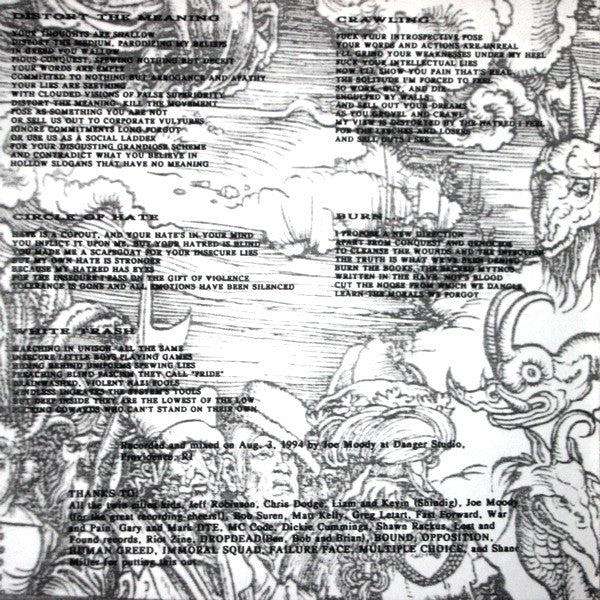 DISTORT THE MEANING
YOUR THOUGHTS ARE SHALLOW
DISTORT THE MEDIUM, PARODIZING MY BELIEFS
IN GREED YOU WALLOW
PIOUS CONQUEST, SPEWING NOTHING BUT DECEIT
YOUR WORDS ARE EMPTY
COMMITTED TO NOTHING BUT ARROGANCE AND APATHY
YOUR LIES ARE SEETHING
WITH CLOUDED VISIONS OF FALSE SUPERIORITY
DISTORT THE MEANING, KILL THE MOVEMENT
POSE AS SOMETHING YOU ARE NOT
OR SELL US OUT TO CORPORATE VULTURES
IGNORE COMMITMENTS LONG FORGOT
OR USE US AS A SOCIAL LADDER
FOR YOUR DISGUSTING GRANDIOSE SCHEME
AND CONTRADICT WHAT YOU BELIEVE IN
HOLLOW SLOGANS THAT HAVE NO MEANING
CIRCLE OF HATE
HATE IS A COPOUT, AND YOUR HATE'S IN YOUR MIND
YOU INFLICT IT UPON ME, BUT YOUR HATRED IS BLIND
YOU MADE ME A SCAPEGOAT FOR YOUR INSECURE LIES
BUT MY OWN HATE IS STRONGER
BECAUSE MY HATRED HAS EYES
FOR THE INSECURE I PASS ON THE GIFT OF VIOLENCE
TOLERANCE IS GONE AND ALL EMOTIONS HAVE BEEN SILENCED
WHITE TRASH
MARCHING IN UNISON, ALL THE SAME
INSECURE LITTLE BOYS PLAYING GAMES
HIDING BEHIND UNIFORMS SPEWING LIES
PREACHING BLIND FASCISM THEY CALL "PRIDE"
BRAINWASHED, VIOLENT NAZI FOOLS
MINDLESS INGRATES THE SYSTEM'S TOOLS
BUT DEEP INSIDE THEY ARE THE LOWEST OF THE LOW
FUCKING COWARDS WHO CAN'T STAND ON THEIR OWN
CRAWLING
FUCK YOUR INTROSPECTIVE POSE
YOUR WORDS AND ACTIONS ARE UNREAL
I'LL GRIND YOUR WEAKNESSES UNDER MY HEEL
FUCK YOUR INTELLECTUAL LIES
NOW I'LL SHOW YOU PAIN THAT'S REAL
THE SOLITUDE I'M FORCED TO FEEL
SO WORK, BUY, AND DIE
ENGULFED BY WALLS
AND SELL OUT YOUR DREAMS
AS YOU GROVEL AND CRAWL
MY VIEW IS DISTORTED BY THE HATRED I FEEL
FOR THE LEECHES AND LOSERS
AND SELL OUTS I SEE
BURN...
I PROPOSE A NEW DIRECTION
APART FROM CONQUEST AND GENOCIDE
TO CLEANSE THE WOUNDS AND THE INFECTION
THE TRUTH IS WHAT WE'VE BEEN DENIED
BURN THE BOOKS, THE SACRED MYTHOS
WRITTEN IN THE HAVE-NOT'S BLOOD
CUT THE NOOSE FROM WHICH WE DANGLE
LEARN THE MORALS WE FORGOT
Recorded and mixed on Aug. 3, 1994 by Joe Moody at Danger Studio,
Providence, RI
THANKS TO:
All the twin cities kids, Jeff Robinson, Chris Dodge, Liam and Kevin (Shindig), Joe Moody
(for the great recording-cheers!), Bob Suren, Matt Kelly, Greg Letart, Fast Forward, War
and Pain, Gary and Mark DTE, MC Code, Dickie Cummings, Shawn Rackus, Lost and
Found records, Riot Zine, DROPDEAD(Ben, Bob and Brian), BOUND, OPPOSITION,
HUMAN GREED, IMMORAL SQUAD, FAILURE FACE, MULTIPLE CHOICE, and Shane
Miller for putting this out.